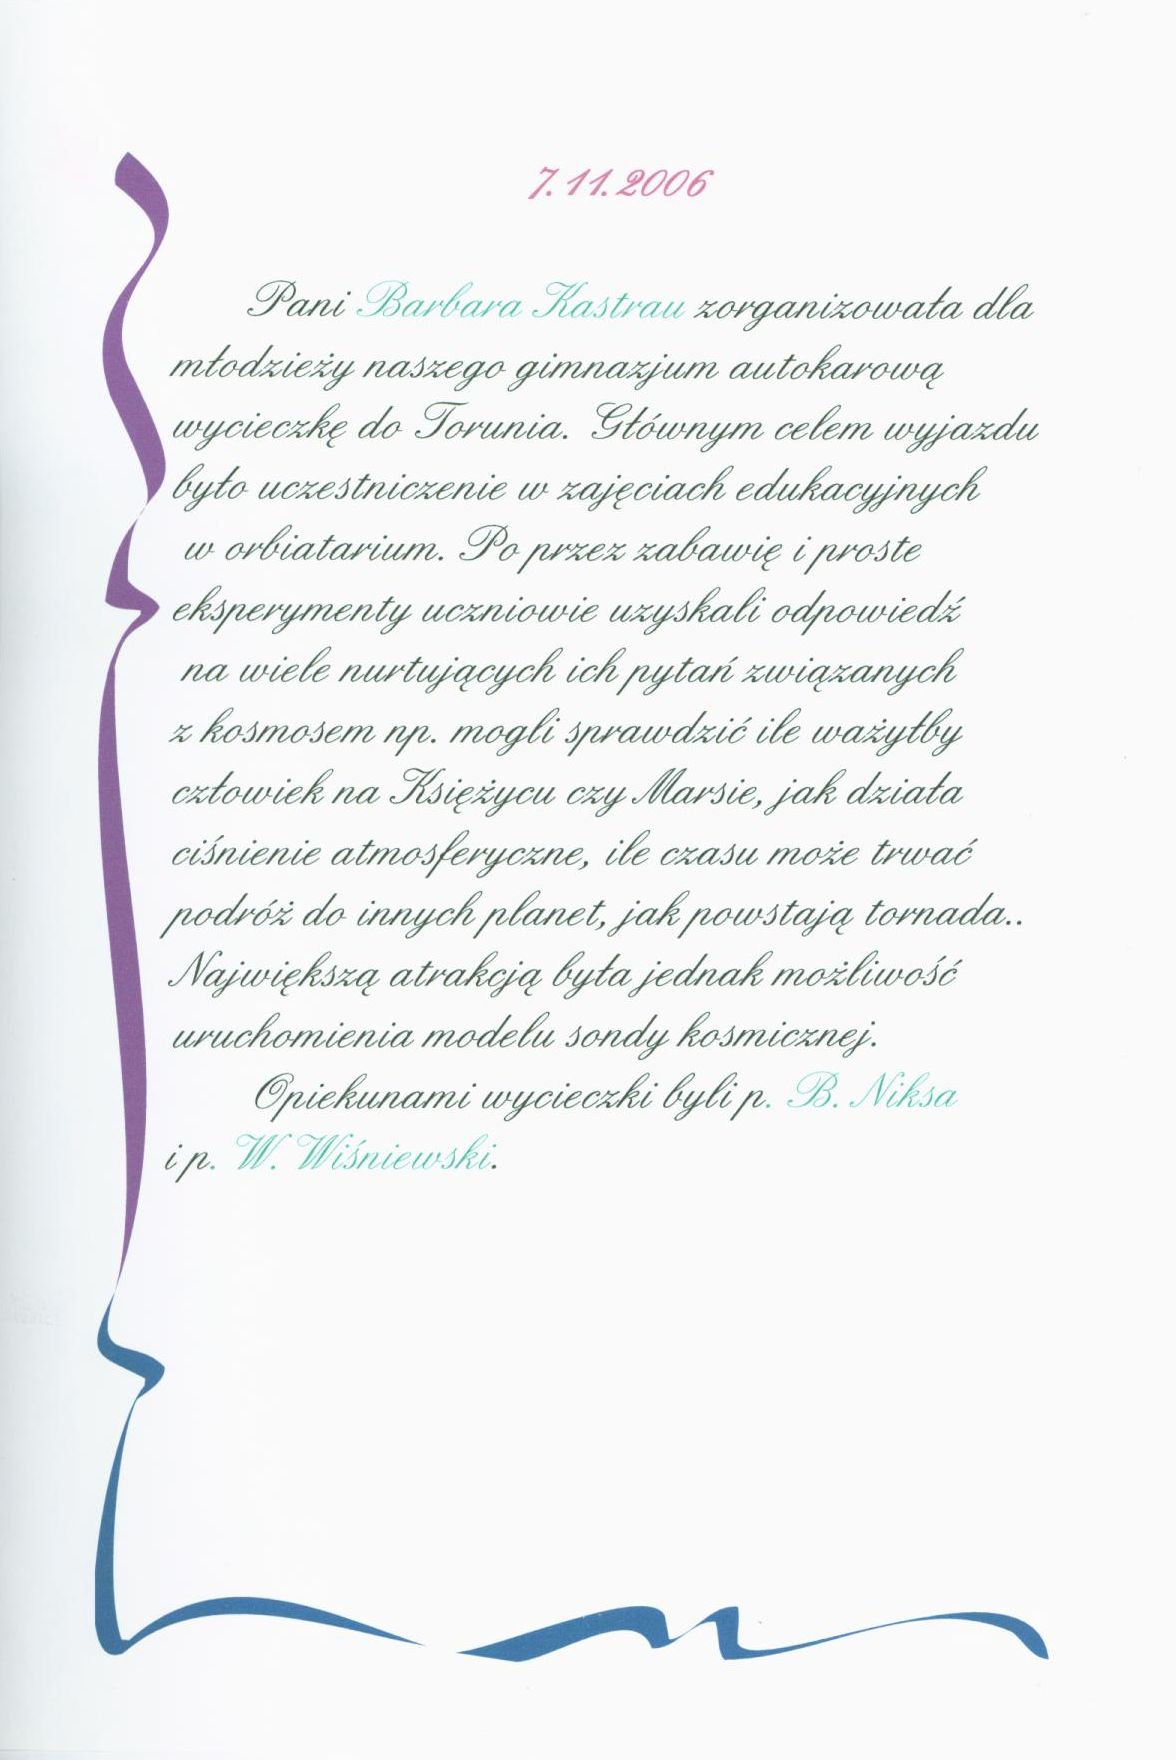 7.11.2006
Pani Barbara Kastrau zorganizowała dla
młodzieży naszego gimnazjum autokarową
wycieczkę do Torunia. Głównym celem wyjazdu
było uczestniczenie w zajęciach edukacyjnych
w orbiatarium. Po przez zabawię i proste
eksperymenty uczniowie uzyskali odpowiedź
na wiele nurtujących ich pytań związanych
z kosmosem np. mogli sprawdzić ile ważyłby
człowiek na Księżycu czy Marsie, jak działa
ciśnienie atmosferyczne, ile czasu może trwać
podróż do innych planet, jak powstają tornada..
Największą atrakcją była jednak możliwość
uruchomienia modelu sondy kosmicznej.
Opiekunami wycieczki byli p. B. Niksa
i p. W. Wiśniewski.